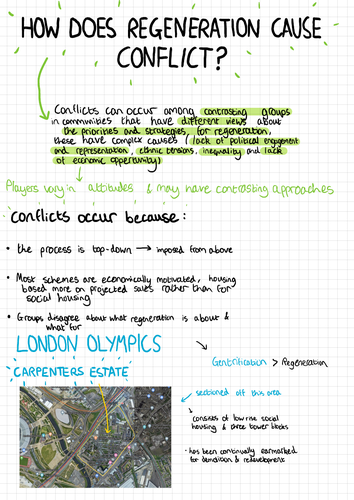 HOW DOES REGENERATION CAUSE
CONFLICT?
Conflicts can occur among contrasting groups
in communities that have different views about
the priorities and strategies for regeneration,
these have complex causes (lack of political engagement
and representation, ethnic tensions, inequality and lack
of economic opportunity)
Players vary in attitudes & may have contrasting approaches
Conflicts occur because:
• the process is top-down → imposed from above
• Most schemes are economically motivated, housing
based more on projected sales rather than for
social housing
• Groups disagree about what regeneration is about &
what for
LONDON OLYMPICS
Gentrification > Regeneration
CARPENTERS ESTATE
sectioned off this area
consists of low rise social
housing & three tower blocks
• has been continually earmarked
for demolition & redevelopment